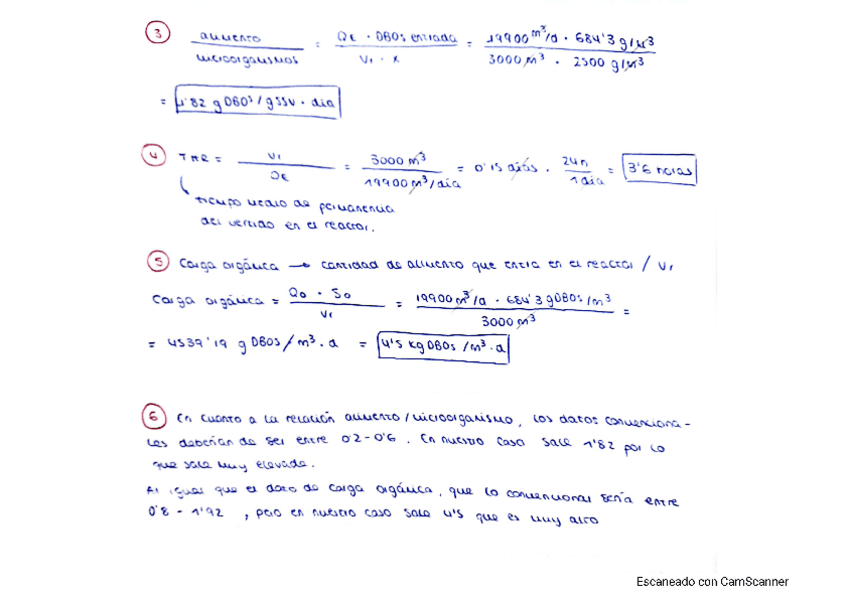 3 alimento / microorganismos = QE · DBO5 entrada / Vr · x = 19900 m³/d · 684'3 g/m³ / 3000 m³ · 2500 g/m³
= 1'82 g DBO5/gSSV · dia
4 THR = Vr / QE = 3000 m³ / 19900 m³/dia = 0'15 dias · 24h / 1 dia = 3'6 horas
tiempo medio de permanencia
del vertido en el reactor.
5 Carga orgánica → cantidad de alimento que entra en el reactor / Vr
Carga orgánica = Q0 · S0 / Vr = 19900 m³/d · 684'3 g DBO5/m³ / 3000 m³ =
= 4539'19 g DBO5/m³ · d = 4'5 kg DBO5/m³ · d
6 En cuanto a la relación alimento/microorganismo, los datos convenciona-
les deberían de ser entre 0'2-0'6. En nuestro caso sale 1'82 por lo
que sale muy elevada.
Al igual que el dato de carga orgánica, que lo convencional sería entre
0'8 - 1'92, pero en nuestro caso sale 4'5 que es muy alto
Escaneado con CamScanner